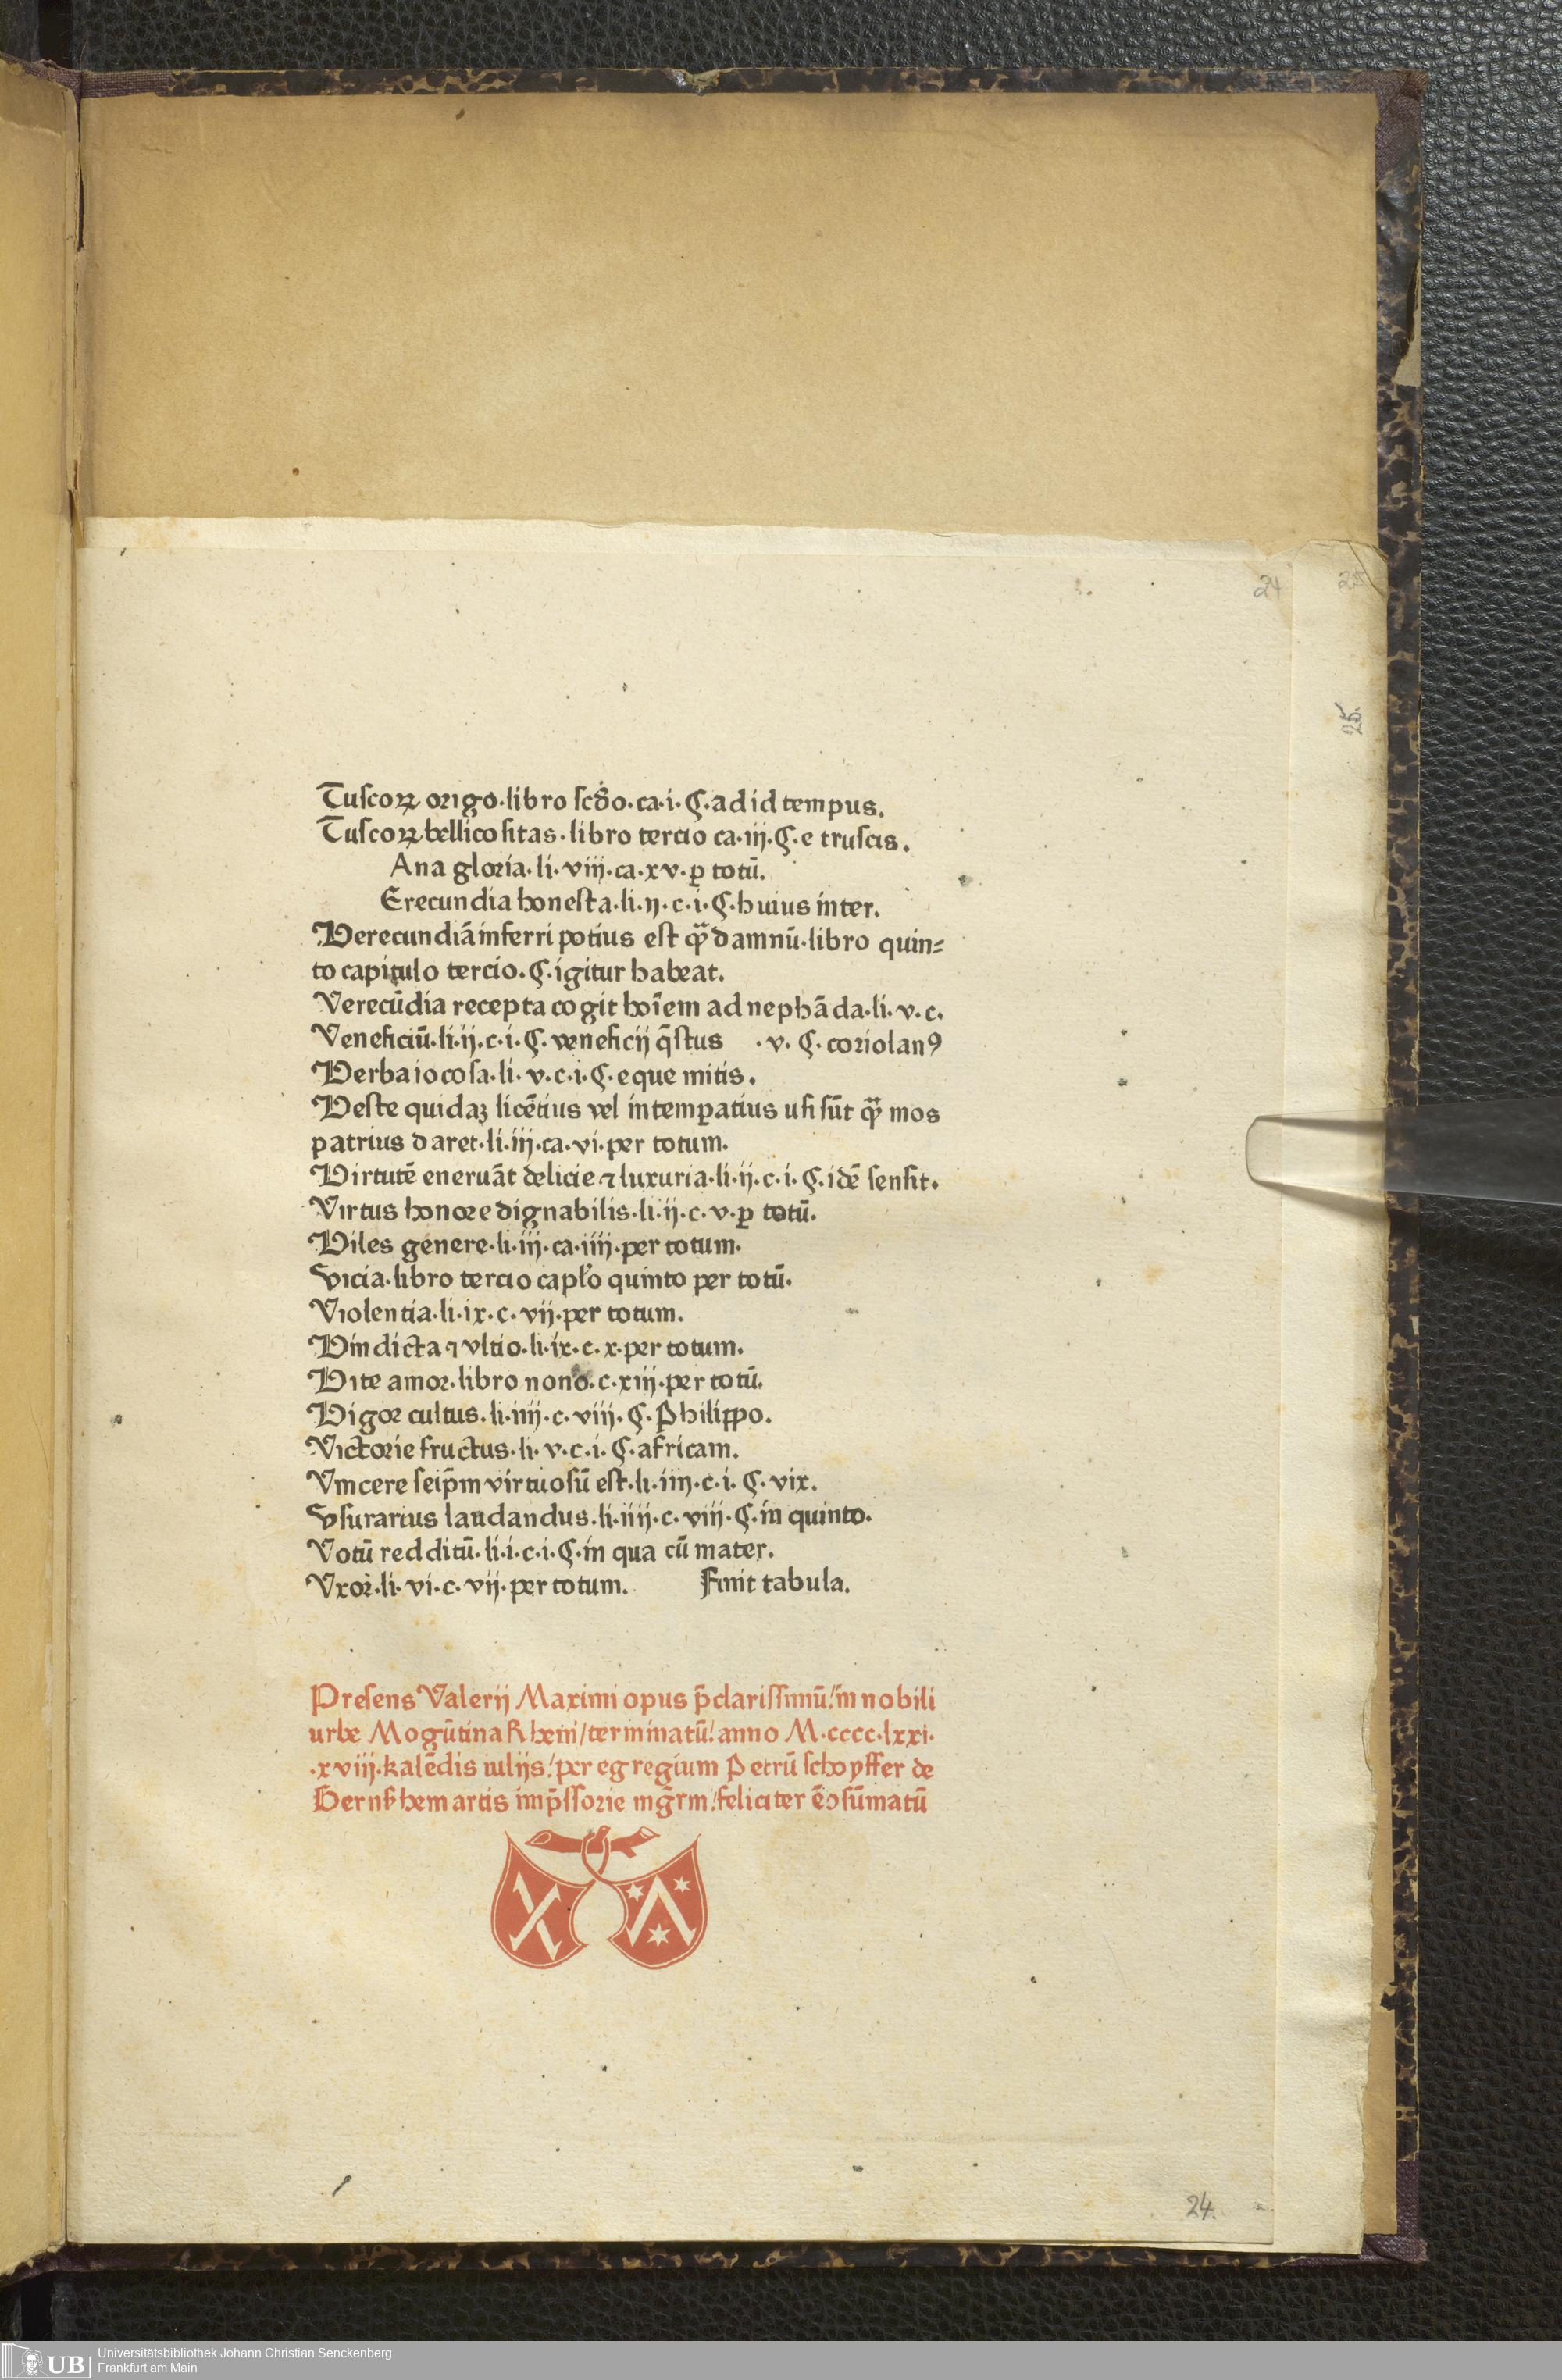 24
25.
Tuſcoꝝ origo·libro ſcd̓o·ca·i·Ꞔ·ad id tempus.
Tuſcoꝝ bellicoſitas·libro tercio ca·iij·Ꞔ·e truſcis.
Ana gloria·li·viij·ca·xv·ꝑ totū.
Erecundia honeſta·li·ij·c·i·Ꞔ·huius inter.
Verecundiā inferri potius eſt qꝫ̄ damnū·libro quin⸗
to capitulo tercio·Ꞔ·igitur habeat.
Verecūdia recepta cogit hoīem ad nephāda·li·v·c.
Veneficiū·li·ij·c·i·Ꞔ·veneficij q̄ſtus ·v·Ꞔ·coriolanꝰ
Verba iocoſa·li·v·c·i·Ꞔ·eque mitis.
Veſte quidaꝫ licētius vel intemꝑatius uſi ſūt qꝫ̄ mos
patrius daret·li·iij·ca·vi·per totum.
Virtutē eneruāt delicie ⁊ luxuria·li·ij·c·i·Ꞔ·idē ſenſit.
Virtus honore dignabilis·li·ij·c·v·ꝑ totū.
Viles genere·li·iij·ca·iiij·per totum.
Vicia·libro tercio capľo quinto per totū.
Violentia·li·ix·c·vij·per totum.
Vindicta ⁊ vltio·li·ix·c·x·per totum.
Vite amor·libro nono·c·xiij·per totū.
Vigor cultus·li·iiij·c·viij·Ꞔ·Philippo.
Victorie fructus·li·v·c·i·Ꞔ·africam.
Vincere ſeip̄m virtuoſū eſt·li·iiij·c·i·Ꞔ·vix.
Vſurarius laudandus·li·iiij·c·viij·Ꞔ·in quinto.
Votū redditū·li·i·c·i·Ꞔ·in qua cū mater.
Vxor·li·vi·c·vij·per totum. Finit tabula.
Preſens Valerij Maximi opus p̄clariſſimū/in nobili
urbe Mogūtina Rheni/terminatū/anno M·cccc·lxxi·
·xviij·kalēdis iulijs/per egregium Petrū ſchoyffer de
Gernßhem artis imp̄ſſorie mgr̄m/feliciter ē ↄſūmatū
24.
UB
Universitätsbibliothek Johann Christian Senckenberg
Frankfurt am Main